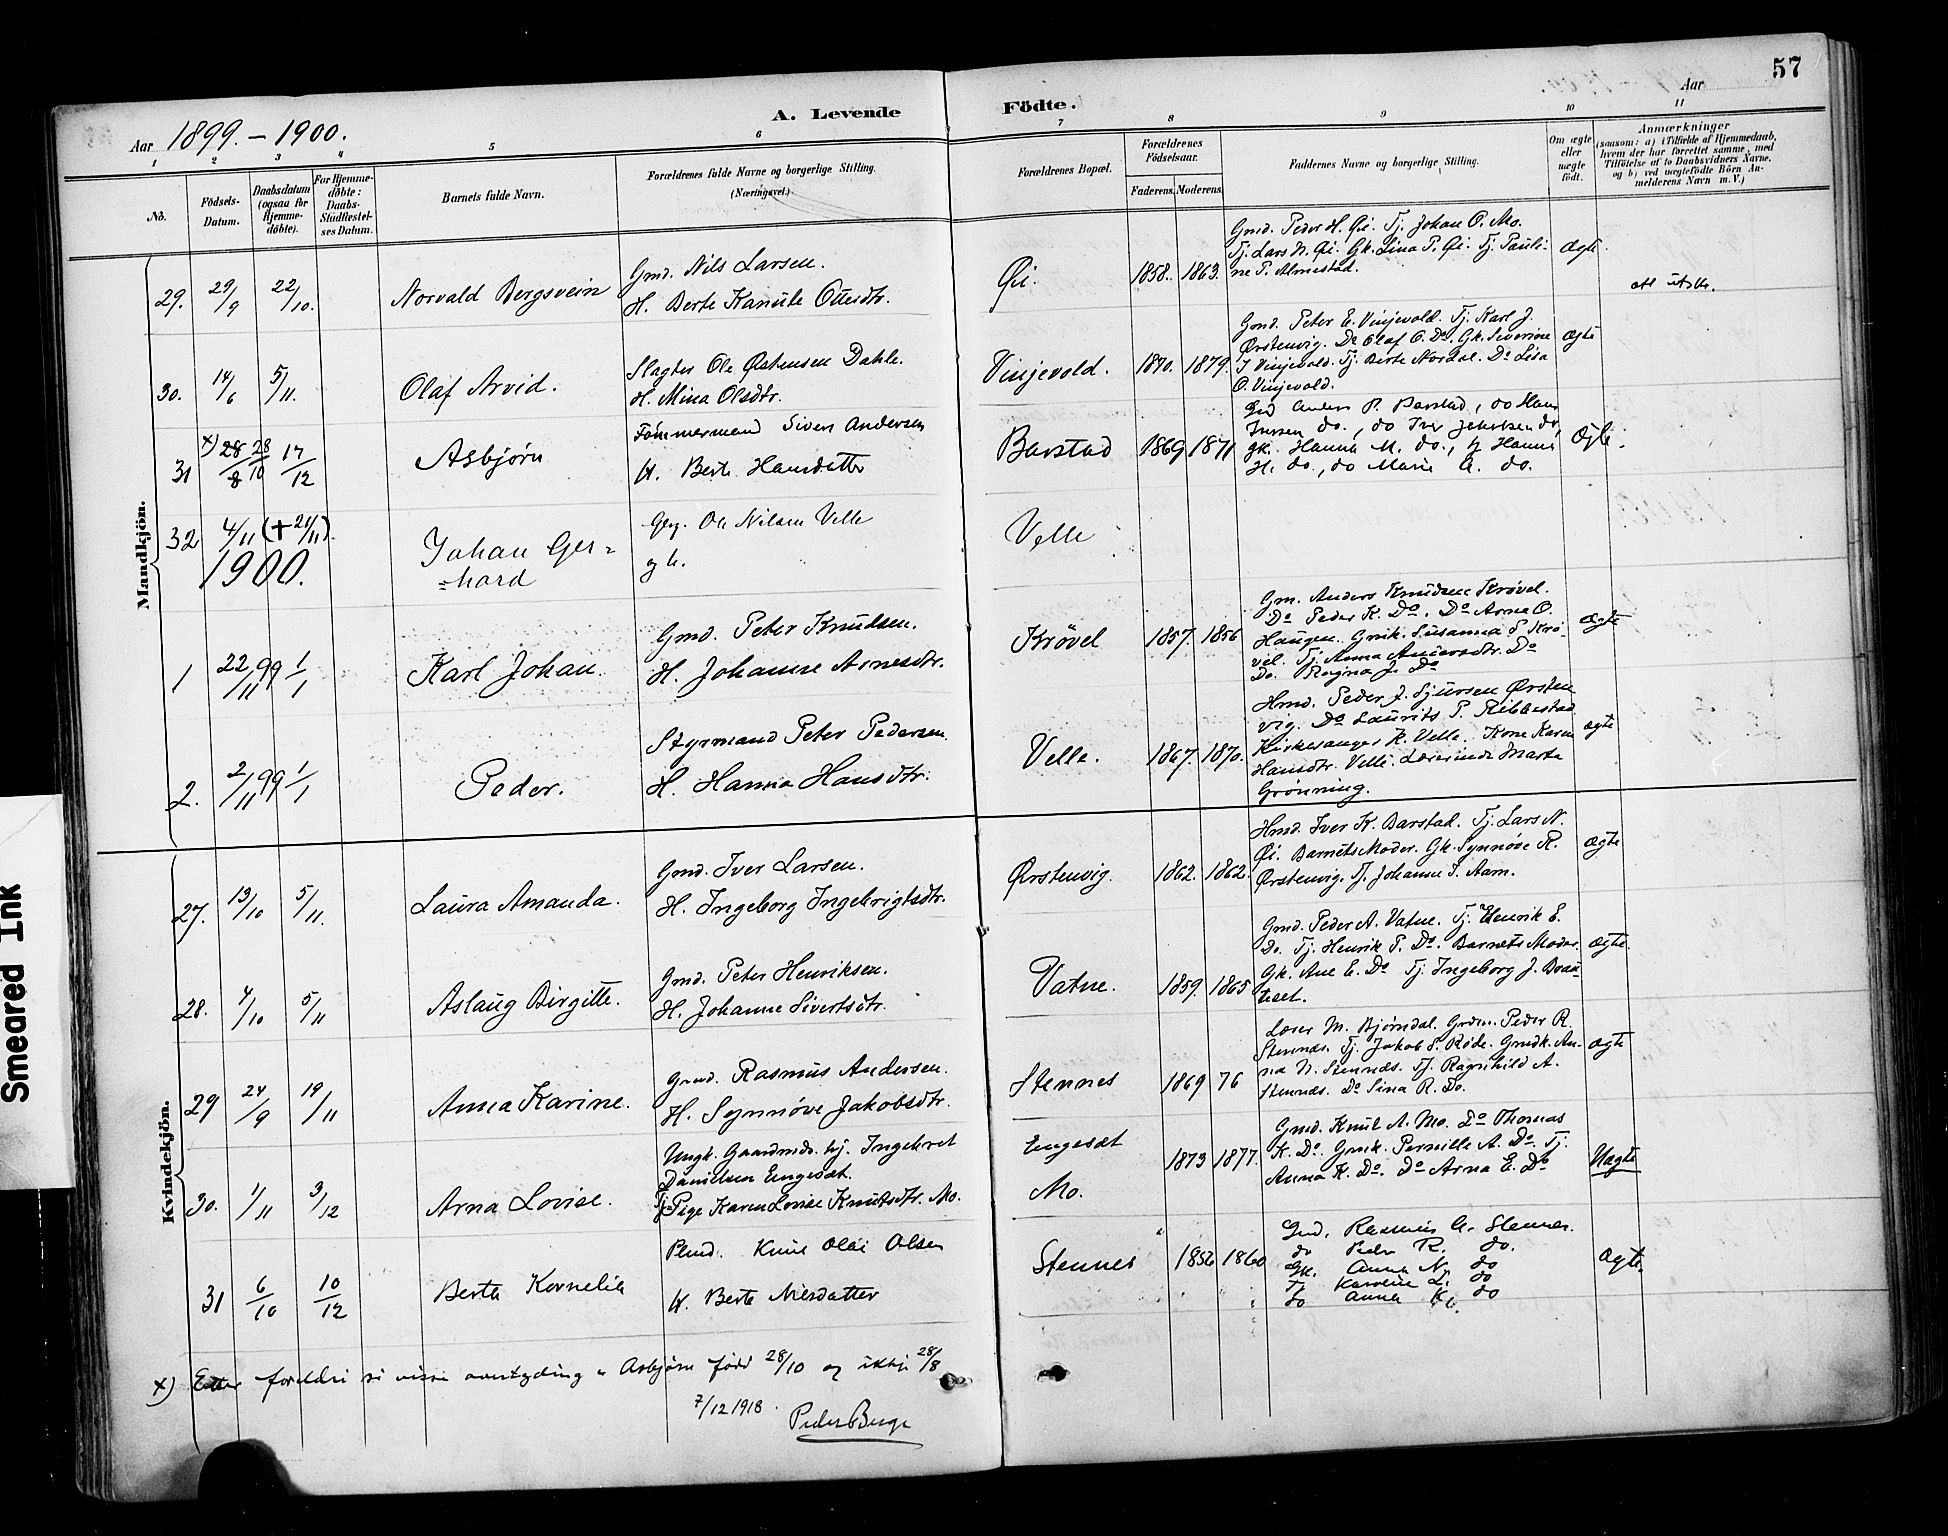 57
Aar 1899.-1900.
A. Levende Födte.
Aar
1 2 3 4 5 6 7 8 9 10 11
No.
Födsels-Datum.
Daabsdatum (ogsaa for Hjemme-döbte).
For Hjemme-döbte: Daabs-Stadfæstel-ses Datum.
Barnets fulde Navn.
Forældrenes fulde Navne og borgerlige Stilling. (Næringsvei.)
Forældrenes Bopæl.
Forældrenes Födselsaar.
Faderens. Moderens.
Faddernes Navne og borgerlige Stilling.
Om ægte eller uægte födt.
Anmærkninger
(saasom: a) i Tilfælde af Hjemmedaab, hvem der har forrettet samme, med Tilföielse af to Daabsvidners Navne, og b) ved uægtefödte Börn An-melderens Navn m. V.)
Mandkjön.
29. 29/9 22/10. Norvald Bergsvein
Gmd. Nils Larsen.
H. Berte Kanule Ottesdtr.
Øi. 1858. 1863.
Gmd. Peder H. Øi. Tj. Johan O. Mo.
Tj. Lars N. Øi. Gk. Lina P. Øi. Tj. Pauli-
ne P. Almestad.
Ægte
att utstr.
30. 14/6 5/11. Olaf Arvid.
Slagter Ole Østensen Dahle.
H. Mina Olsdtr.
Vinjevold. 1870. 1879.
Gmd. Peter E. Vinjevold. Tj. Karl J.
Ørstenvig. Do Olaf O. Do. Gk. Severine
J Vinjevold. Tj. Berte Nordal. Do Lisa
O. Vinjevold.
Ægte
31 x) 28/8 28/10 17/12 Asbjørn
Tømmermand Sivert Andersen
H. Berte Hansdatter
Barstad 1869 1871
Gmd Anders P. Barstad, do Hans
Iversen do., do Iver Jakobsen do,
gk. Hanna M. do., tj Hanna
H. do., do Marie A. do.
Ægte.
32 4/11 (+ 21/11). Johan Ger=
=hard
Gbr. Ole Nilsen Velle
og h.
Velle
1900.
1 22/11 99 1/1 Karl Johan.
Gmd. Peter Knudsen.
H. Johanne Arnesdtr.
Krøvel 1857. 1856
Gm. Anders Knudsen Krøvel.
Do Peder K. Do. Do Arne O.
Haugen. Gmk. Susanna P. Krø-
vel. Tj. Anna Andersdtr. Do
Do. Ragna J. Do
Ægte
2. 2/11 99 1/1 Peder.
Styrmand Peter Pedersen.
H. Hanna Hansdtr.
Velle. 1867. 1870.
Hmd. Peder J. Sjursen Ørsten
vig. Do Laurits P. Ribbestad
Kirkesanger K. Velle. Kone Karen
Hansdtr. Velle. Lærerinde Marta
Grønning.
Ægte
Kvindekjön.
27. 13/10 5/11. Laura Amanda.
Gmd. Iver Larsen.
H. Ingeborg Ingebrigtsdtr.
Ørstenvig. 1862. 1862.
Hmd. Iver K. Barstad. Tj. Lars N.
Øi. Barnets Moder. Gk. Synnøve R.
Ørstenvig. Tj. Johanne I. Aam.
Ægte
28. 4/10 5/11 Aslaug Birgitte.
Gmd. Peter Henriksen.
H. Johanne Sivertsdtr.
Vatne. 1859. 1865
Gmd. Peder A. Vatne. Tj. Henrik E.
Do. Tj. Henrik P. Do. Barnets Moder.
Gk. Ane E. Do Tj. Ingeborg J. Brau-
teset.
Ægte.
29 24/9 19/11 Anna Karine.
Gmd. Rasmus Andersen.
H. Synnøve Jakobsdtr.
Stennes 1869 76
Lærer M. Bjørndal. Grdm. Peder R.
Stennes. Tj. Jakob S. Røde. Gmdk. An-
na N. Stennes. Tj. Ragnhild A.
Stennes. Do Sina R. Do.
Ægte
30. 1/11 3/12 Arna Lovise.
Ungk. Gaardmds. hj. Ingebret
Danielsen Engesæt.
Tj. Pige Karen Lovise Knutsdtr. Mo.
Engesæt
Mo.
1873 1877.
Gmd. Knut A. Mo. Do Thomas
K. Do. Gmk. Pernille A. Do. Tj.
Anna K. Do. Do Arna E. Do
Uægte
31 6/10 10/12 Berta Kornelia
Plmd. Knut Olai Olsen
H. Berte Nilsdatter
Stennes 1856 1860
Gmd. Rasmus A. Stennes.
do Peder R. do.
Gk. Anna N. do
Tj Karoline L. do
do Anna K. do
Ægte.
x) Etter foreldri si visse overtyding er Asbjørn fødd 28/10 og ikkje 28/8
7/12 1918.
Peder Berge
Smeared Ink